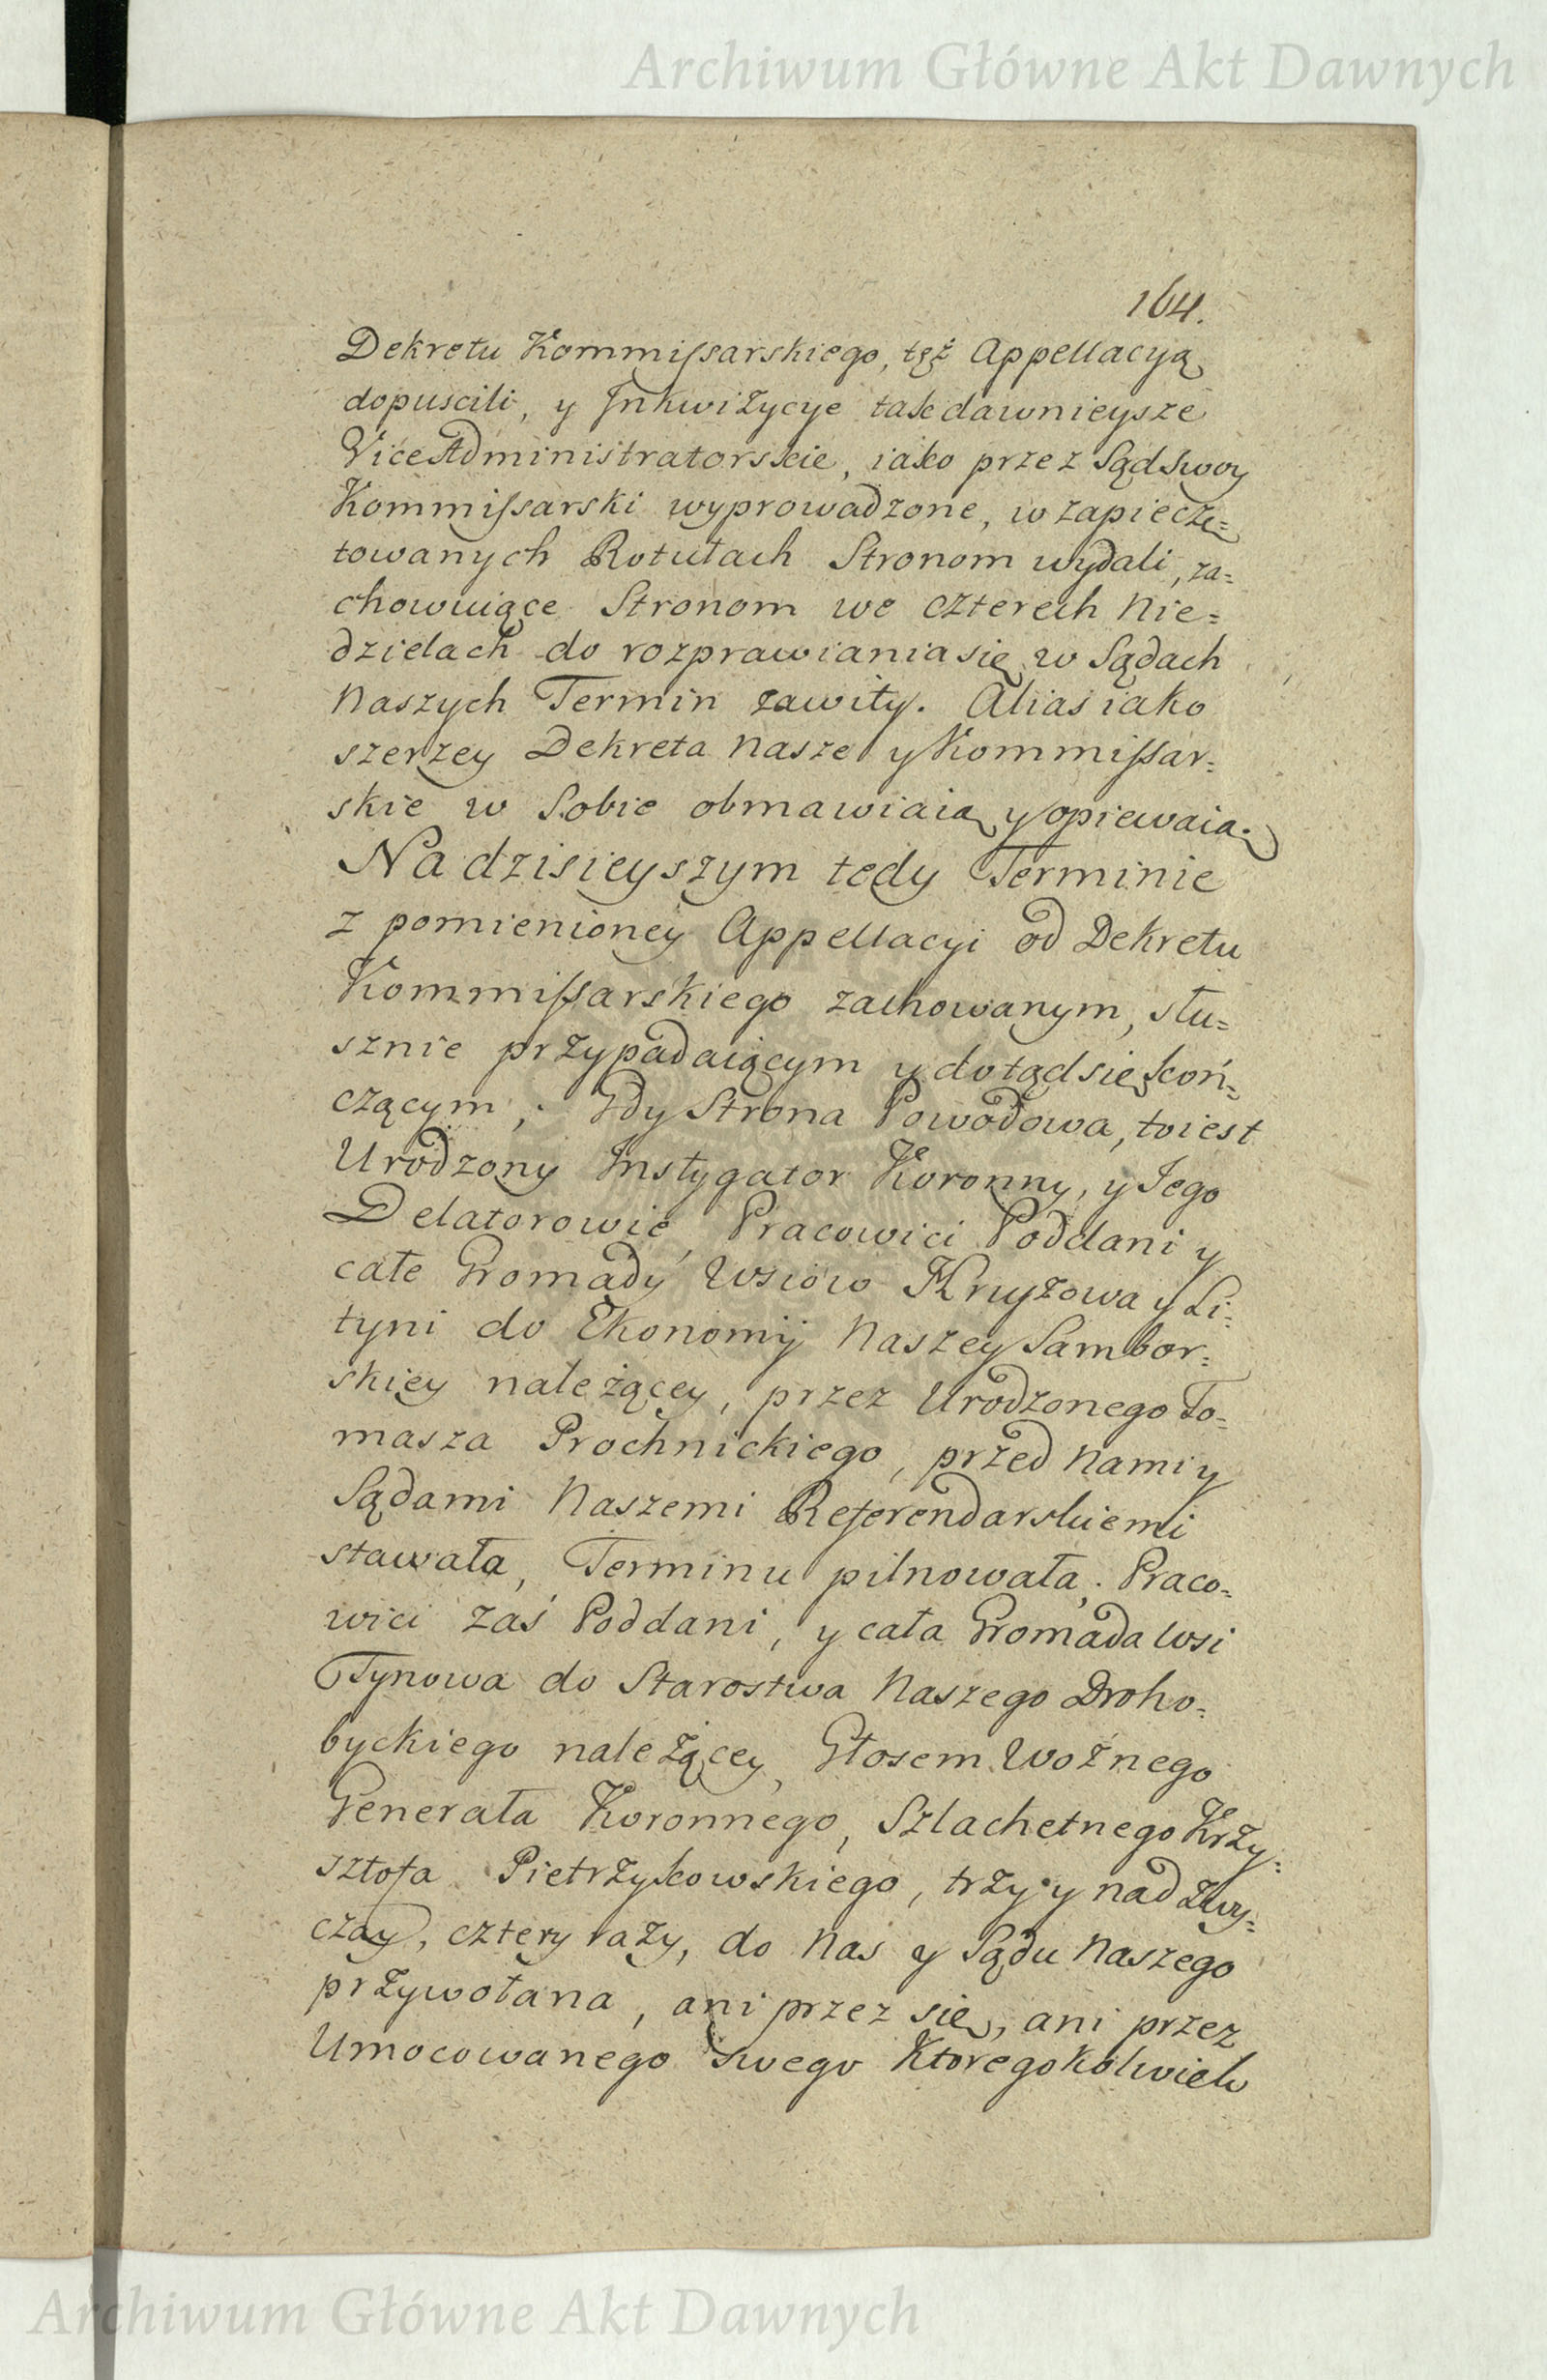 Archiwum Główne Akt Dawnych
164.
Dekretu Kommiſsarskiego, tęż Appellacyą
dopuscili, y Jnkwizycye tak dawnieysze
ViceAdministratorskie, iako przez Sąd Swoy
Kommiſsarski wyprowadzone, w zapieczę=
towanych Rotułach Stronom wydali, za=
chowuiące Stronom we czterech Nie=
dzielach do rozprawiania się w Sądach
Naszych Termin zawity. Alias iako
szerzey Dekreta Nasze y Kommiſsar=
skie w Sobie obmawiaią y opiewaią.
Na dzisieyszym tedy Terminie
z pomienioney Appellacyi od Dekretu
Kommiſsarskiego zachowanym, słu=
sznie przypadaiącym y dotąd się koń=
czącym; Gdy Strona Powodowa, toiest
Urodzony Instygator Koronny, y Jego
Delatorowie, Pracowici Poddani y
całe Gromady Wsiow Krużowa y Li=
tyni do Ekonomij Naszey Sambor=
skiey należącey, przez Urodzonego To=
masza Prochnickiego, przed Nami y
Sądami Naszemi Referendarskiemi
stawała, Terminu pilnowała. Praco=
wici zaś Poddani, y cała Gromada Wsi
Tynowa do Starostwa Naszego Droho=
byckiego należącey, Głosem Woźnego
Generała Koronnego, Szlachetnego Krzy=
sztofa Pietrzykowskiego, trzy y nad zwy=
czay, cztery razy, do Nas y Sądu Naszego
przywołana, ani przez się, ani przez
Umocowanego swego Ktoregokolwiek
Archiwum Główne Akt Dawnych